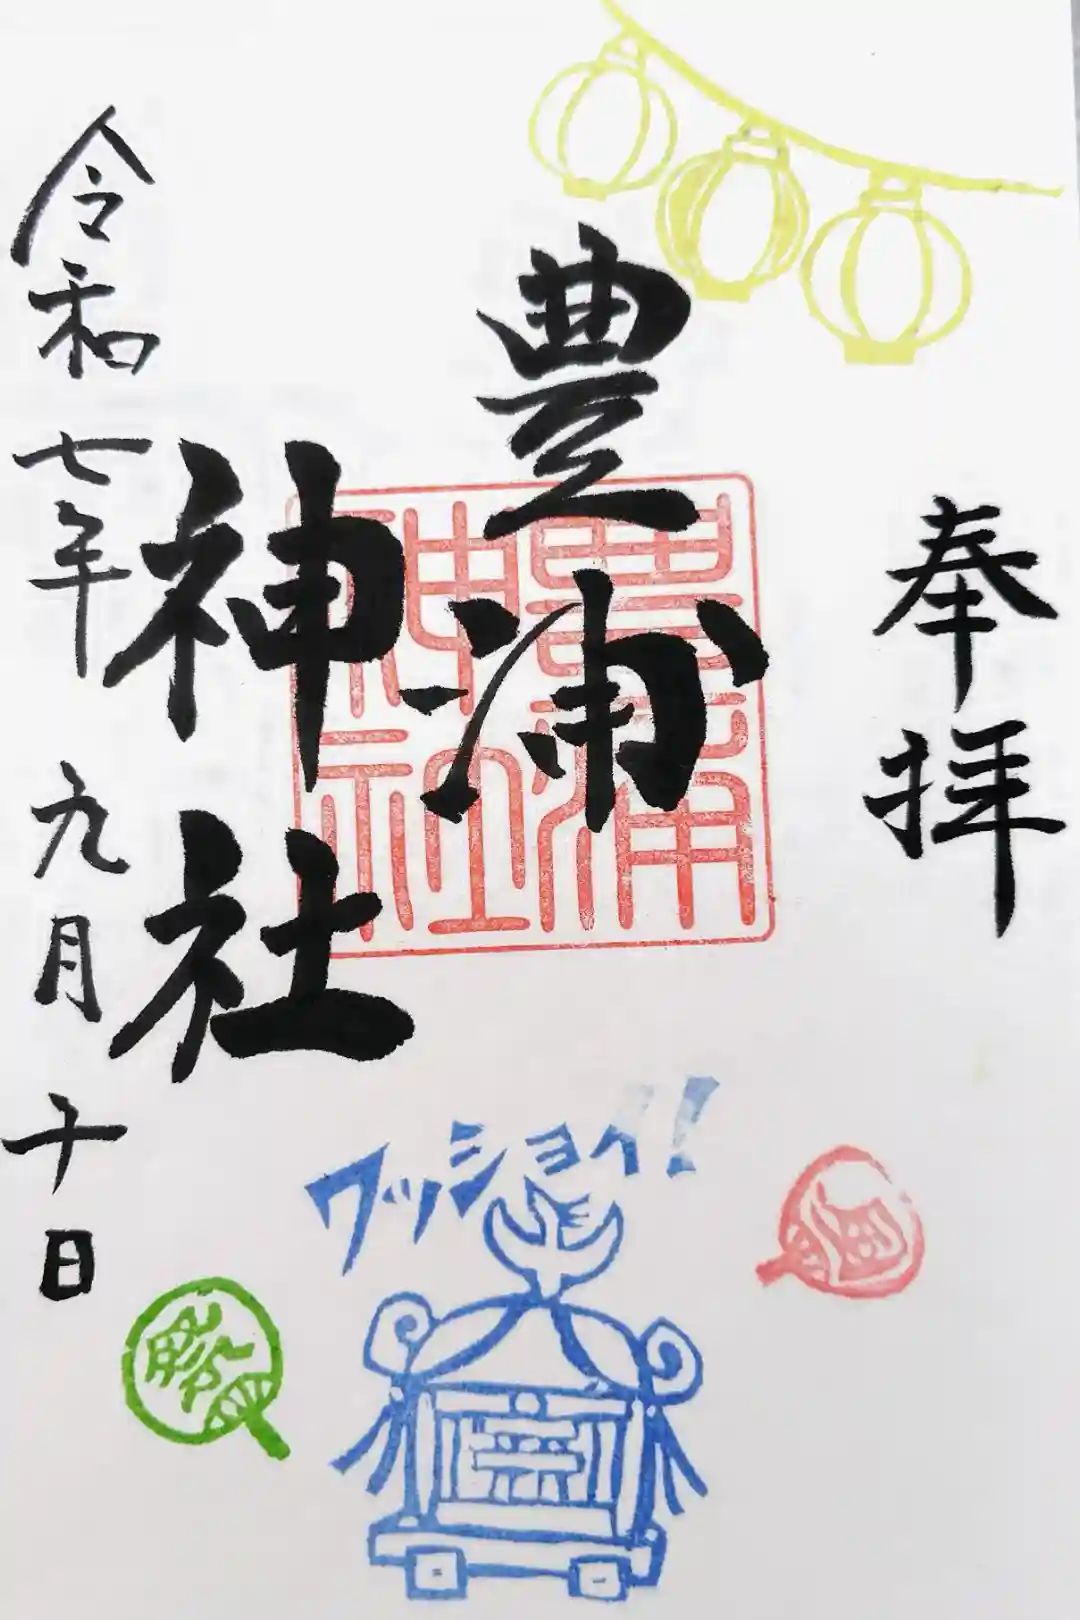 奉拝
豊浦
神社
令和七年九月十日
豊浦
神社
ワッショイ!!